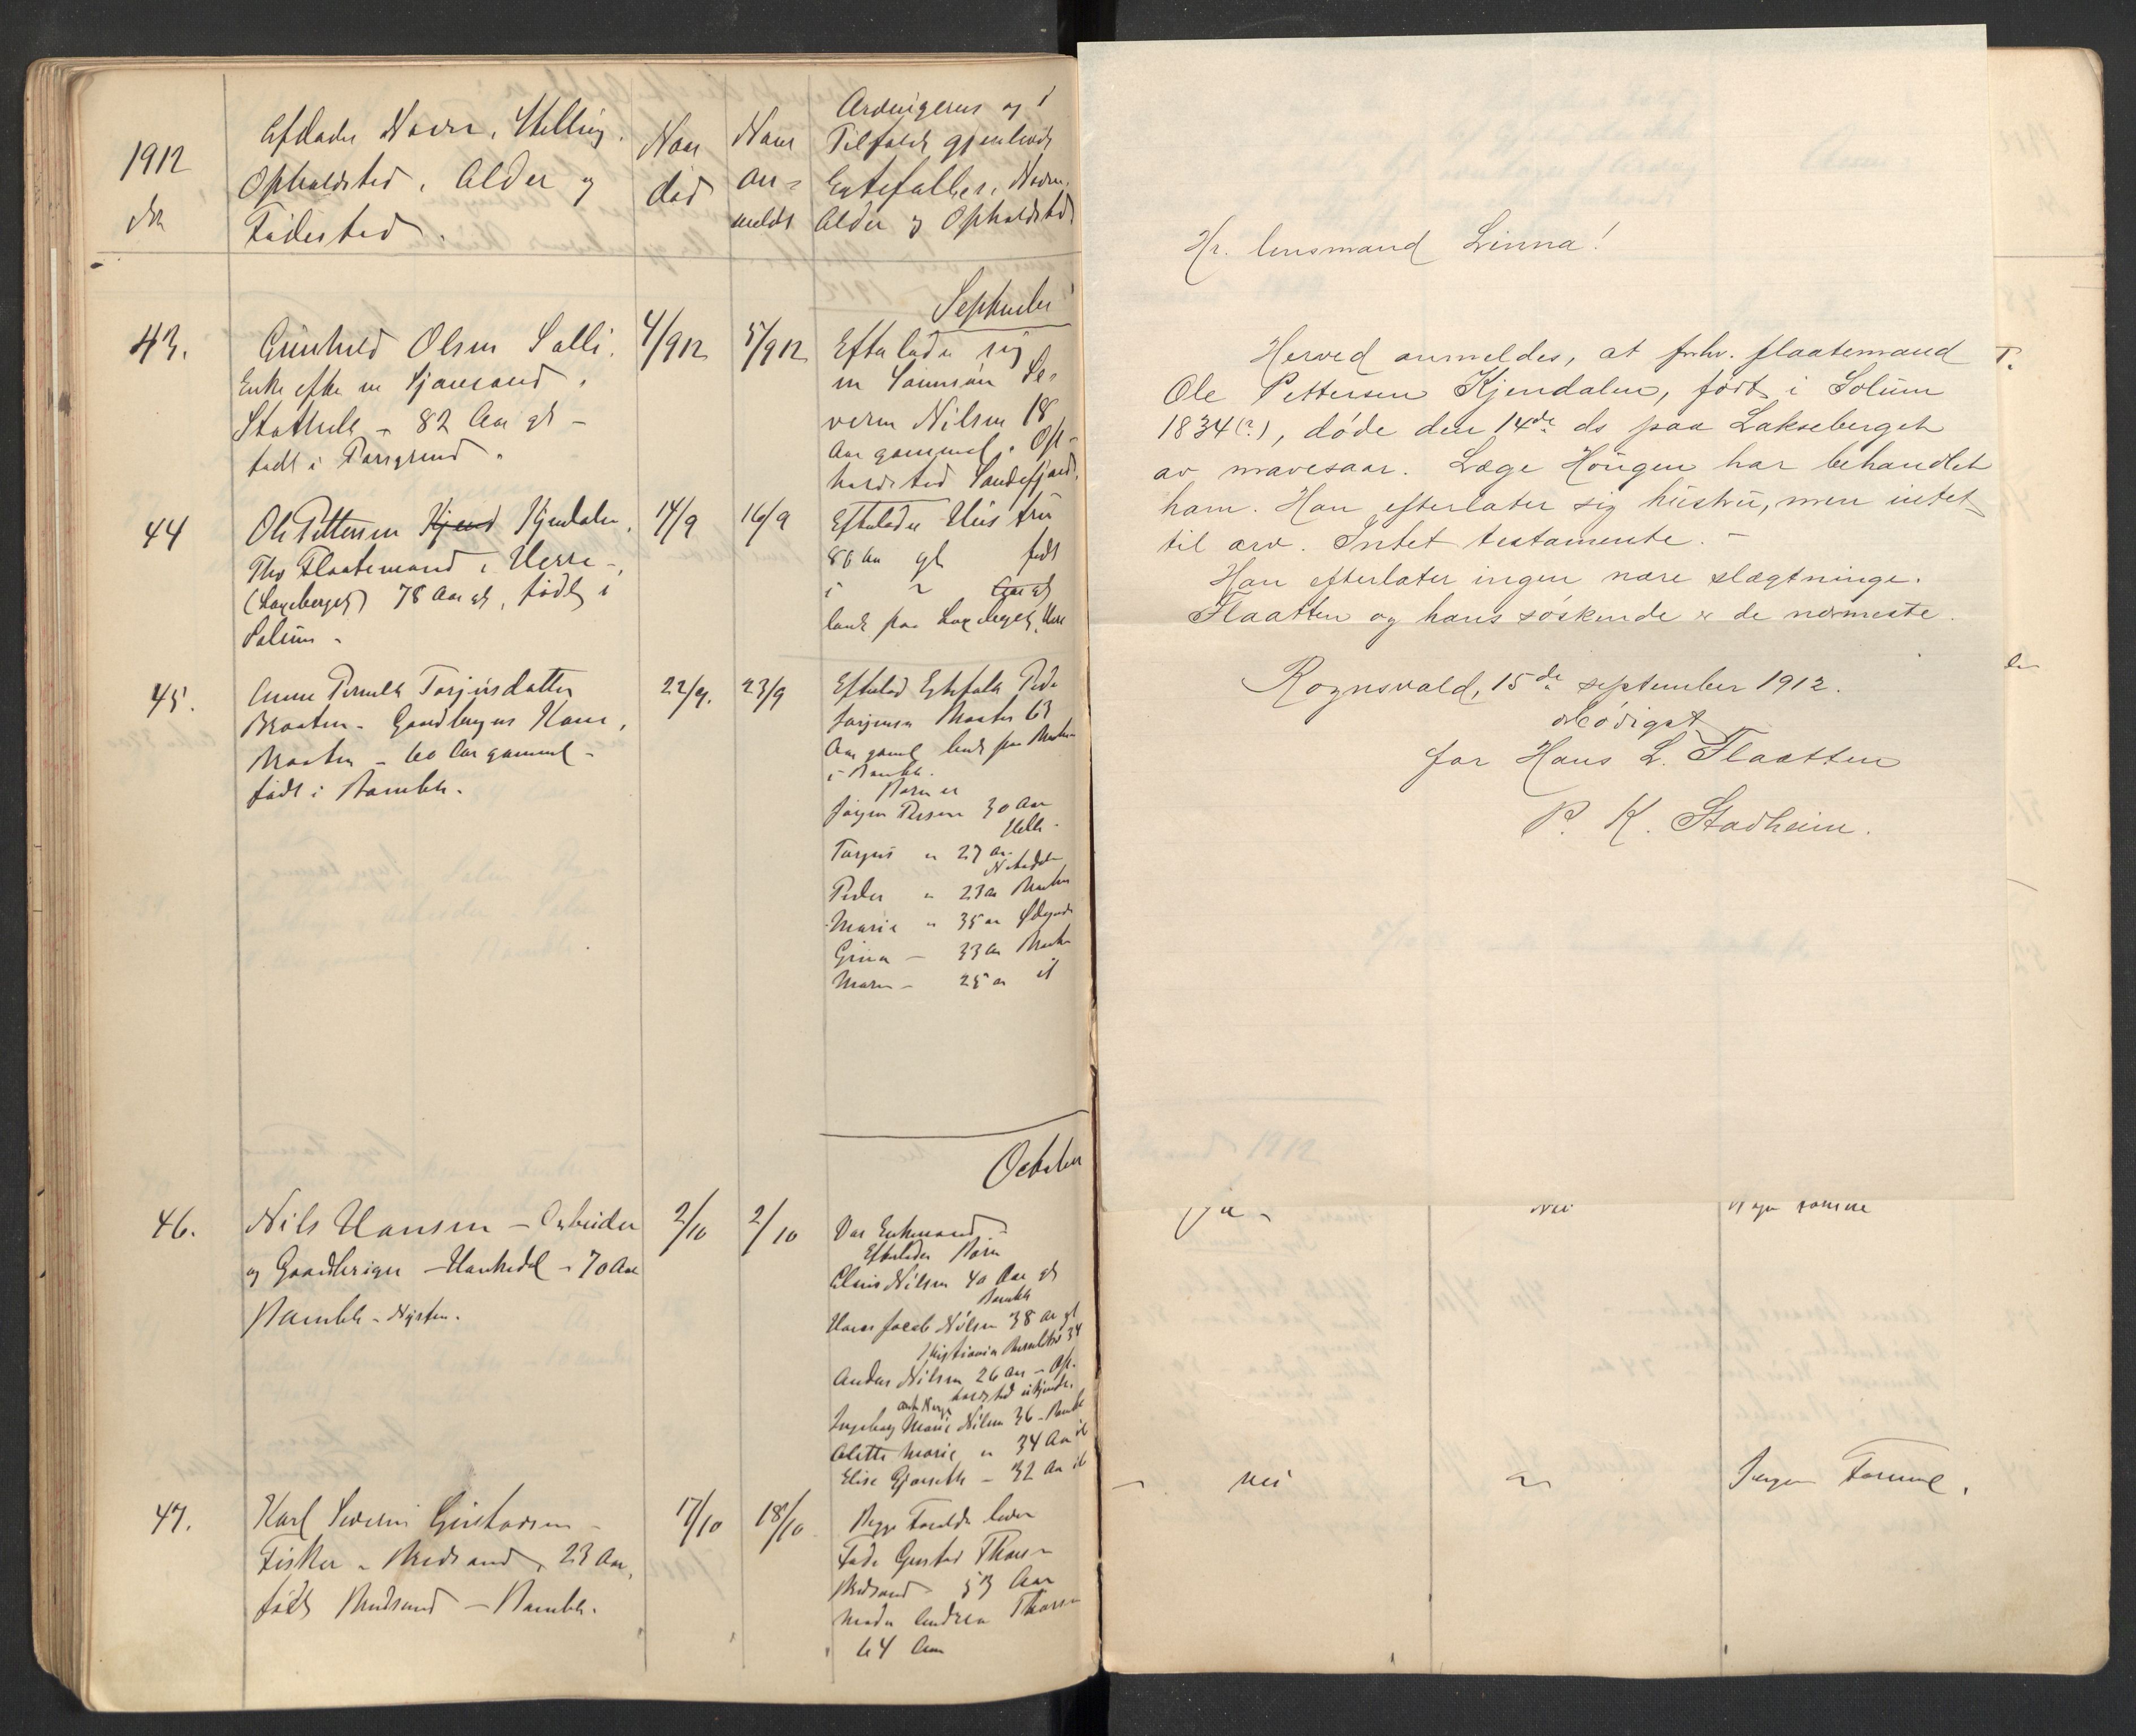 1912
No
Afdødes Navn, Stilling,
Opholdsted, Alder og
Fødested.
Naar
død
Naar
an-
meldt
Arvingernes og i
Tilfælde gjenlevende
Ægtefælles, Navn,
Alder og Opholdsted
September
43.
Gunhild Olsen Salli.
Enke efter en Sjømand,
Stathelle - 82 Aar gl -
født i Porsgrund.
4/9 12
5/9 12
Efterlader sig
en Sønnesøn Se-
verin Nilsen 18
Aar gammel. Op-
holdsted Sandefjord.
44
Ole Pettersen Kjend Kjendalen,
Fhv Flaatemand i Herre -,
(Laxeberget) 78 Aar gl, født i
Solum -
14/9
16/9
Efterlader Hustru
86 Aar gl født
i Aar gl
paa Laxeberget, Herre
45.
Anne Pernille Torjusdatter
Braaten - Gaardbrugers Kone,
Braaten - 60 Aar gammel -
født i Bamble.
22/9.
23/9
Efterlod Egtefælle Peder
Jørgensen Braaten 63
Aar gaml paa Braaten
i Bamble.
Børn er
Jørgen Persen 30 Aar
Helle -
Torjus " 27 Aar
Peder " 23 Aar Braaten
Maria " 35 Aar
Gina - 33 Aar Braaten
Maren - 25 Aar id
October
46.
Nils Hansen - Arbeider
og Gaardbruger - Hankedal - 70 Aar
Bamble - Nysten.
2/10
2/10
Var Enkemand -
Efterlader Børn
Nilsen 40 Aar gl
Bamble
Hans Jacob Nilsen 38 Aar gl
Kristiania 34
Anders Nilsen 26 Aar - Op-
holdsted ukjendt.
Ingeborg Marie Nilsen 36 - Bamble
Olette Marie " 34 Aar id
Elise - 32 Aar id
47.
Karl Severin Gustavsen -
Fisker - Bredsand, 23 Aar,
født Bredsand - Bamble.
17/10
18/10
Begge Forældre lever
Fader Gustav Thorsen
Bredsand 53 Aar
Moder Andrea Thorsen
64 Aar
Hr. lensmand Linna!
Herved anmeldes, at forhv. flaatemand
Ole Pettersen Kjendalen, født i Solum
1834(?), døde den 14de ds paa Lakseberget
av mavesaar. Læge Höugen har behandlet
ham. Han efterlater sig hustru, men intet
til arv. Intet testamente. -
Han efterlater ingen nære slægtninge.
Flaatten og hans søskende er de nærmeste.
Rognsvald, 15de september 1912.
Ærbødigst
for Hans L. Flaatten
P. K. Stadheim.
T.
Nei
Ingen Formue
-
nei
"
Ingen Formue.